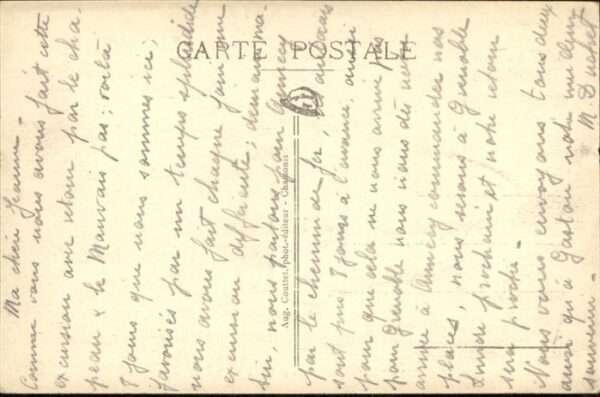 CARTE POSTALE
Aug. Couttet, phot.-éditeur - Chamonix
Ma chère Jeanne -
Comme vous nous avons fait cette
excursion avec retour par le cha-
peau & le Mauvais pas; voilà
8 jours que nous sommes ici,
favorisés par un temps splendide
nous avons fait chaque jour une
excursion différente; demain ma-
tin, nous partons pour Annecy
par le chemin de fer, les
sont pris 8 jours à l'avance, aussi
pour que cela ne nous arrive pas
pour Grenoble nous irons dès notre
arrivée à Annecy commander nos
places, nous serons à Grenoble
Lundi prochain et notre retour
sera proche -
Nous vous envoyons tous deux
ainsi qu'à Gaston notre meilleur
souvenir - M.